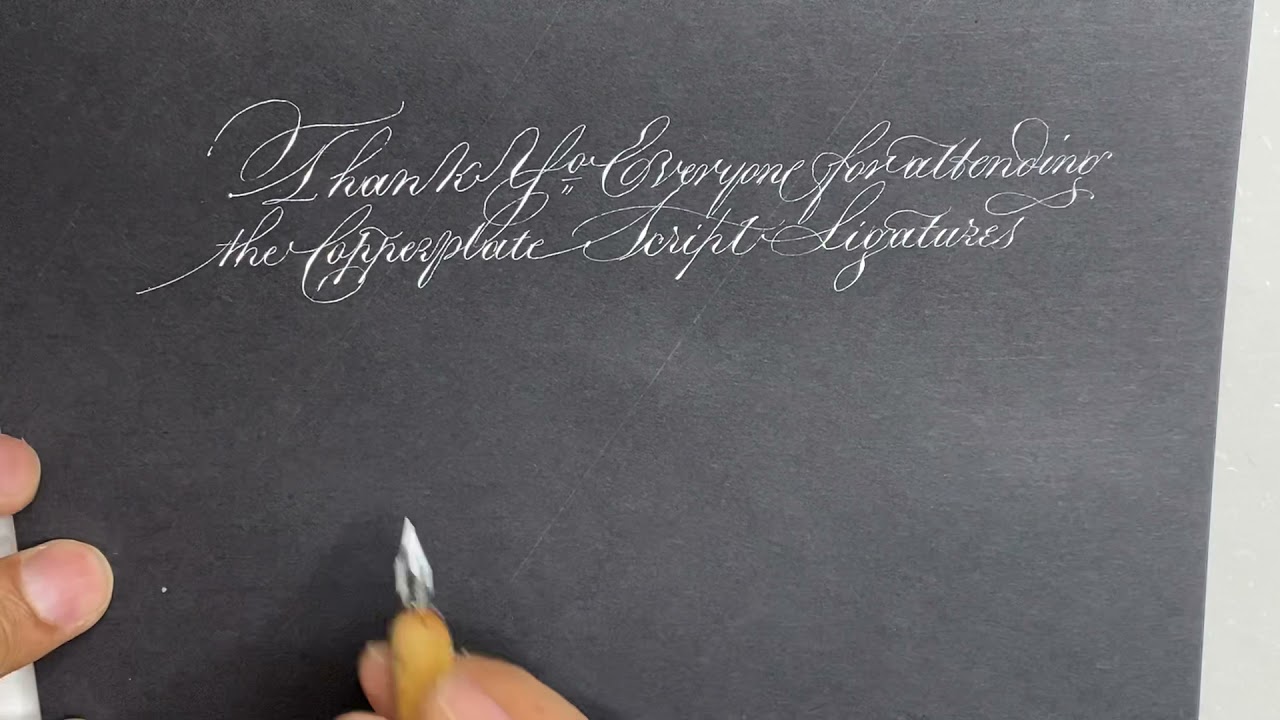 Thank Yo Everyone for attending
the Copperplate Script Ligatures